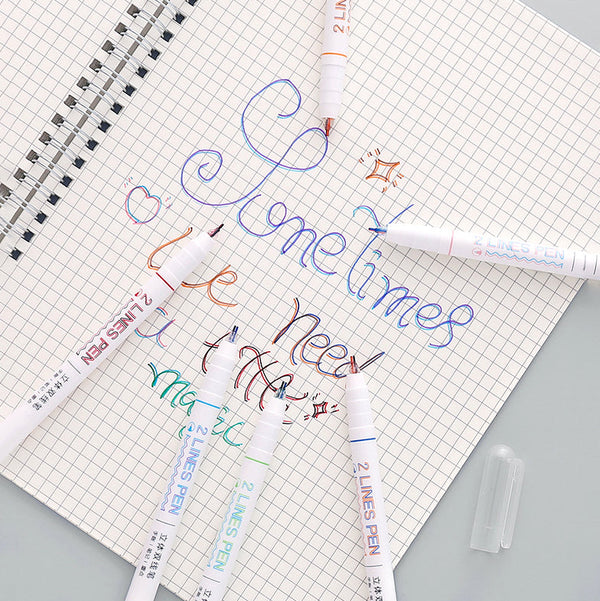 2 LINES
Sometimes
2 LINES PEN
we need
a
magic
2 LINES PEN
立体双线笔
2 LINES PEN
立体双线笔
2 LINES PEN
2 LINES PEN
立体双